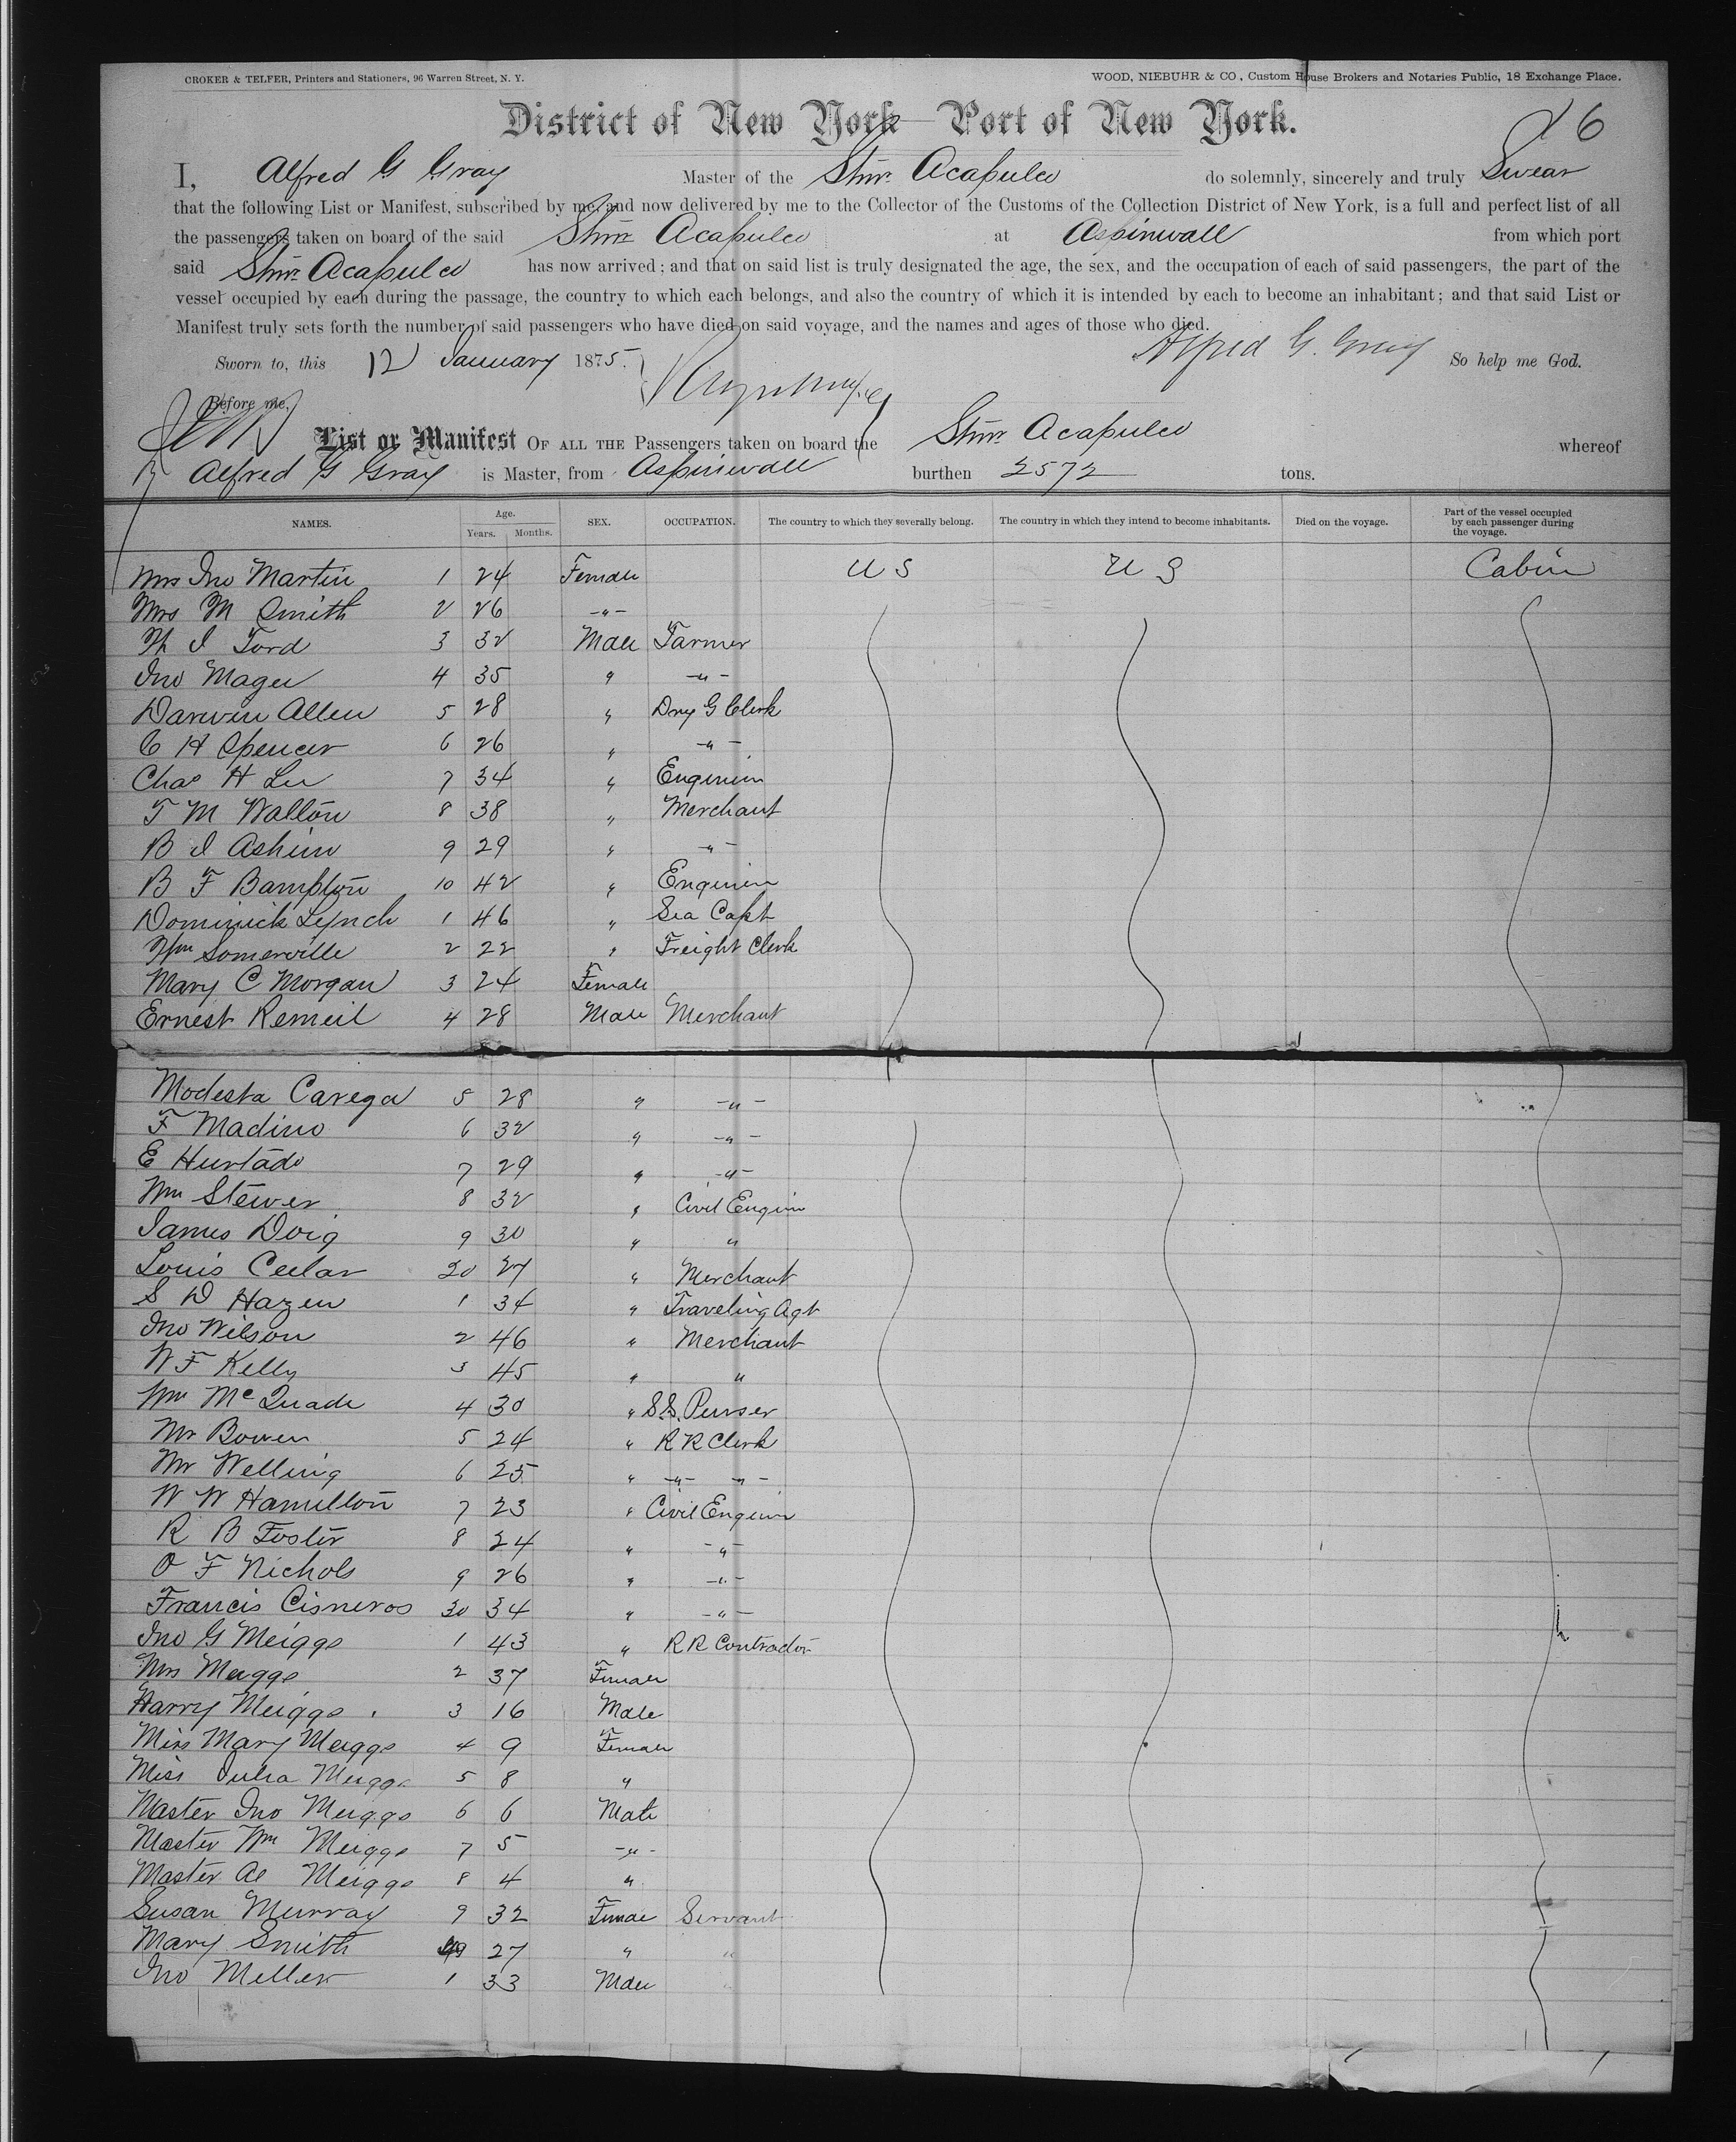 CROKER & TELFER, Printers and Stationers, 96 Warren Street, N. Y. WOOD, NIEBUHR & CO., Custom House Brokers and Notaries Public, 18 Exchange Place.
District of New York Port of New York. 26
I, Alfred G Gray Master of the Stmr. Acapulco do solemnly, sincerely and truly Swear
that the following List or Manifest, subscribed by me, and now delivered by me to the Collector of the Customs of the Collection District of New York, is a full and perfect list of all
the passengers taken on board of the said Stmr Acapulco at Aspinwall from which port
said Stmr. Acapulco has now arrived; and that on said list is truly designated the age, the sex, and the occupation of each of said passengers, the part of the
vessel occupied by each during the passage, the country to which each belongs, and also the country of which it is intended by each to become an inhabitant; and that said List or
Manifest truly sets forth the number of said passengers who have died on said voyage, and the names and ages of those who died.
Sworn to, this 12 January 1875. Alfred G. Gray So help me God.
Before me,
List or Manifest OF ALL THE Passengers taken on board the Stmr. Acapulco whereof
Alfred G Gray is Master, from Aspinwall burthen 2572 tons.
NAMES. Age. Years. Months. SEX. OCCUPATION. The country to which they severally belong. The country in which they intend to become inhabitants. Died on the voyage. Part of the vessel occupied by each passenger during the voyage.
Mrs Jno Martin 1 24 Female U S U S Cabin
Mrs M Smith 2 26 -"-
J Ford 3 32 Male Farmer
Jno Magee 4 35 " -"-
Darwin Allen 5 28 " Dry G Clerk
C H Spencer 6 26 " -"-
Chas H Lee 7 34 " Engineer
T M Walton 8 38 " Merchant
B J Ashim 9 29 " -"-
B F Bampton 10 42 " Engineer
Dominick Lynch 1 46 " Sea Capt
Wm Somerville 2 22 " Freight Clerk
Mary C Morgan 3 24 Female
Ernest Remeil 4 28 Male Merchant
Modesta Carega 5 28 " -"-
F Madino 6 32 " -"-
E Hurtado 7 29 " -"-
Wm Stewer 8 32 " Civil Engin
James Doig 9 30 " "
Louis Cular 20 27 " Merchant
S D Hazen 1 34 " Traveling Agt
Jno Wilson 2 46 " Merchant
W F Kelly 3 45 " "
Wm McQuade 4 30 " S.S. Purser
Mr Bowen 5 24 " R R Clerk
Mr Welling 6 25 " -"- -"-
W W Hamilton 7 23 " Civil Engin
R B Foster 8 24 " -"-
O F Nichols 9 26 " -"-
Francis Cisneros 30 34 " -"-
Jno G Meiggs 1 43 " R R Contractor
Mrs Meiggs 2 37 Female
Harry Meiggs 3 16 Male
Miss Mary Meiggs 4 9 Female
Miss Julia Meiggs 5 8 "
Master Jno Meiggs 6 6 Male
Master Wm Meiggs 7 5 -"-
Master Al Meiggs 8 4 "
Susan Murray 9 32 Female Servant
Mary Smith 40 27 " "
Jno Miller 1 33 Male "